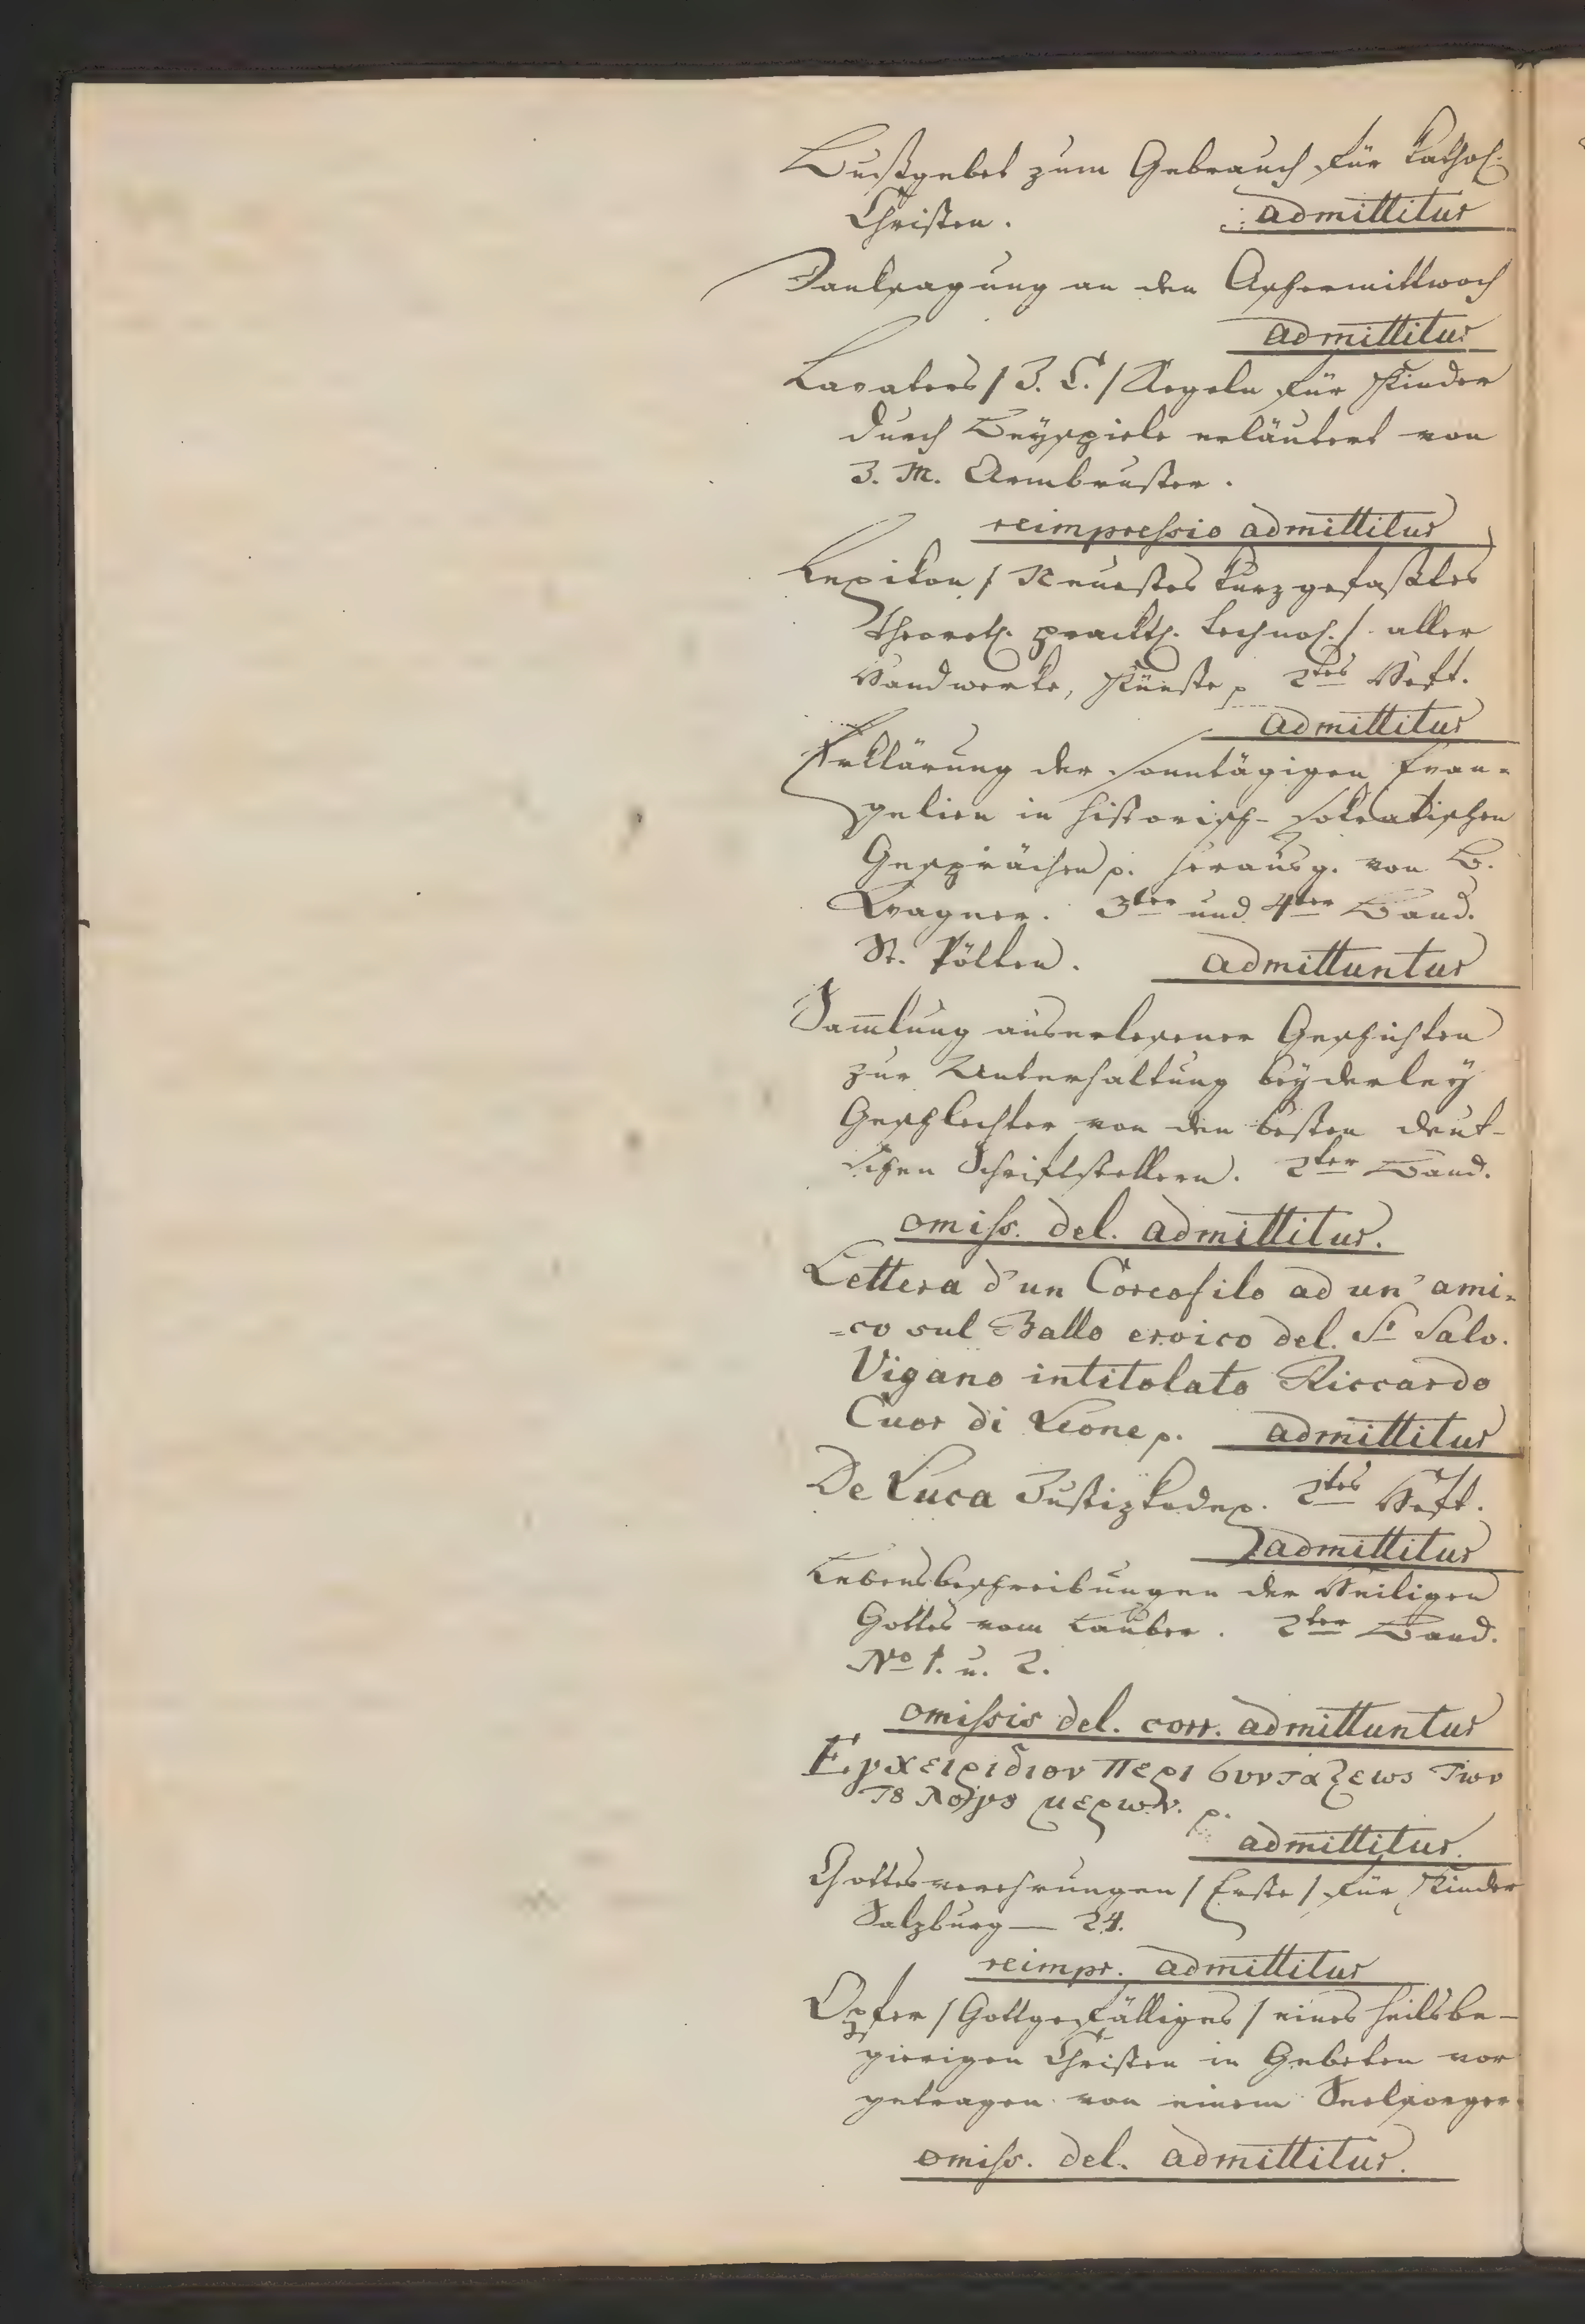 Bußgebet zum Gebrauch für kathol.
Christen. admittitur
Danksagung an den Aschermittwoch
admittitur
Lavaters / J. C. / Regeln für Kinder
durch Beyspiele erläutert von
J. M. Armbruster.
reimpressio admittitur
Lexikon / Neuestes kurzgefaßtes
theoret. prackt. technol. / aller
Handwerke, Künste p 2tes Heft.
admittitur
Erklärung der sonntägigen Evan-
gelien in historisch-sokratischen
Gesprächen p. herausg. von B.
Wagner. 3ter und 4ter Band.
St. Pölten. admittuntur
Sam̅lung auserlesener Geschichten
zur Unterhaltung beyderley
Geschlechter von den besten deut-
schen Schriftstellern. 2ter Band.
omiss. del. admittitur.
Lettera d'un Coreofilo ad un' ami-
-co sul Ballo eroico del Sr Salv.
Vigano intitolato Riccardo
Cuor di Leone p. admittitur
De Luca Justizkodex. 2tes Heft.
admittitur
Lebensbeschreibungen der Heiligen
Gottes vom Lauber. 2ter Band.
No 1. u. 2.
omissis del. corr. admittuntur
Εγχειριδιον περι συνταξεως των
τȣ λογȣ μερων. p.
admittitur.
Gottesverehrungen / Erste / für Kinder
Salzburg — 24.
reimpr. admittitur
Opfer / Gottgefälliges / eines heilsbe-
gierigen Christen in Gebeten vor
getragen von einem Seelsorger
omiss. del. admittitur.